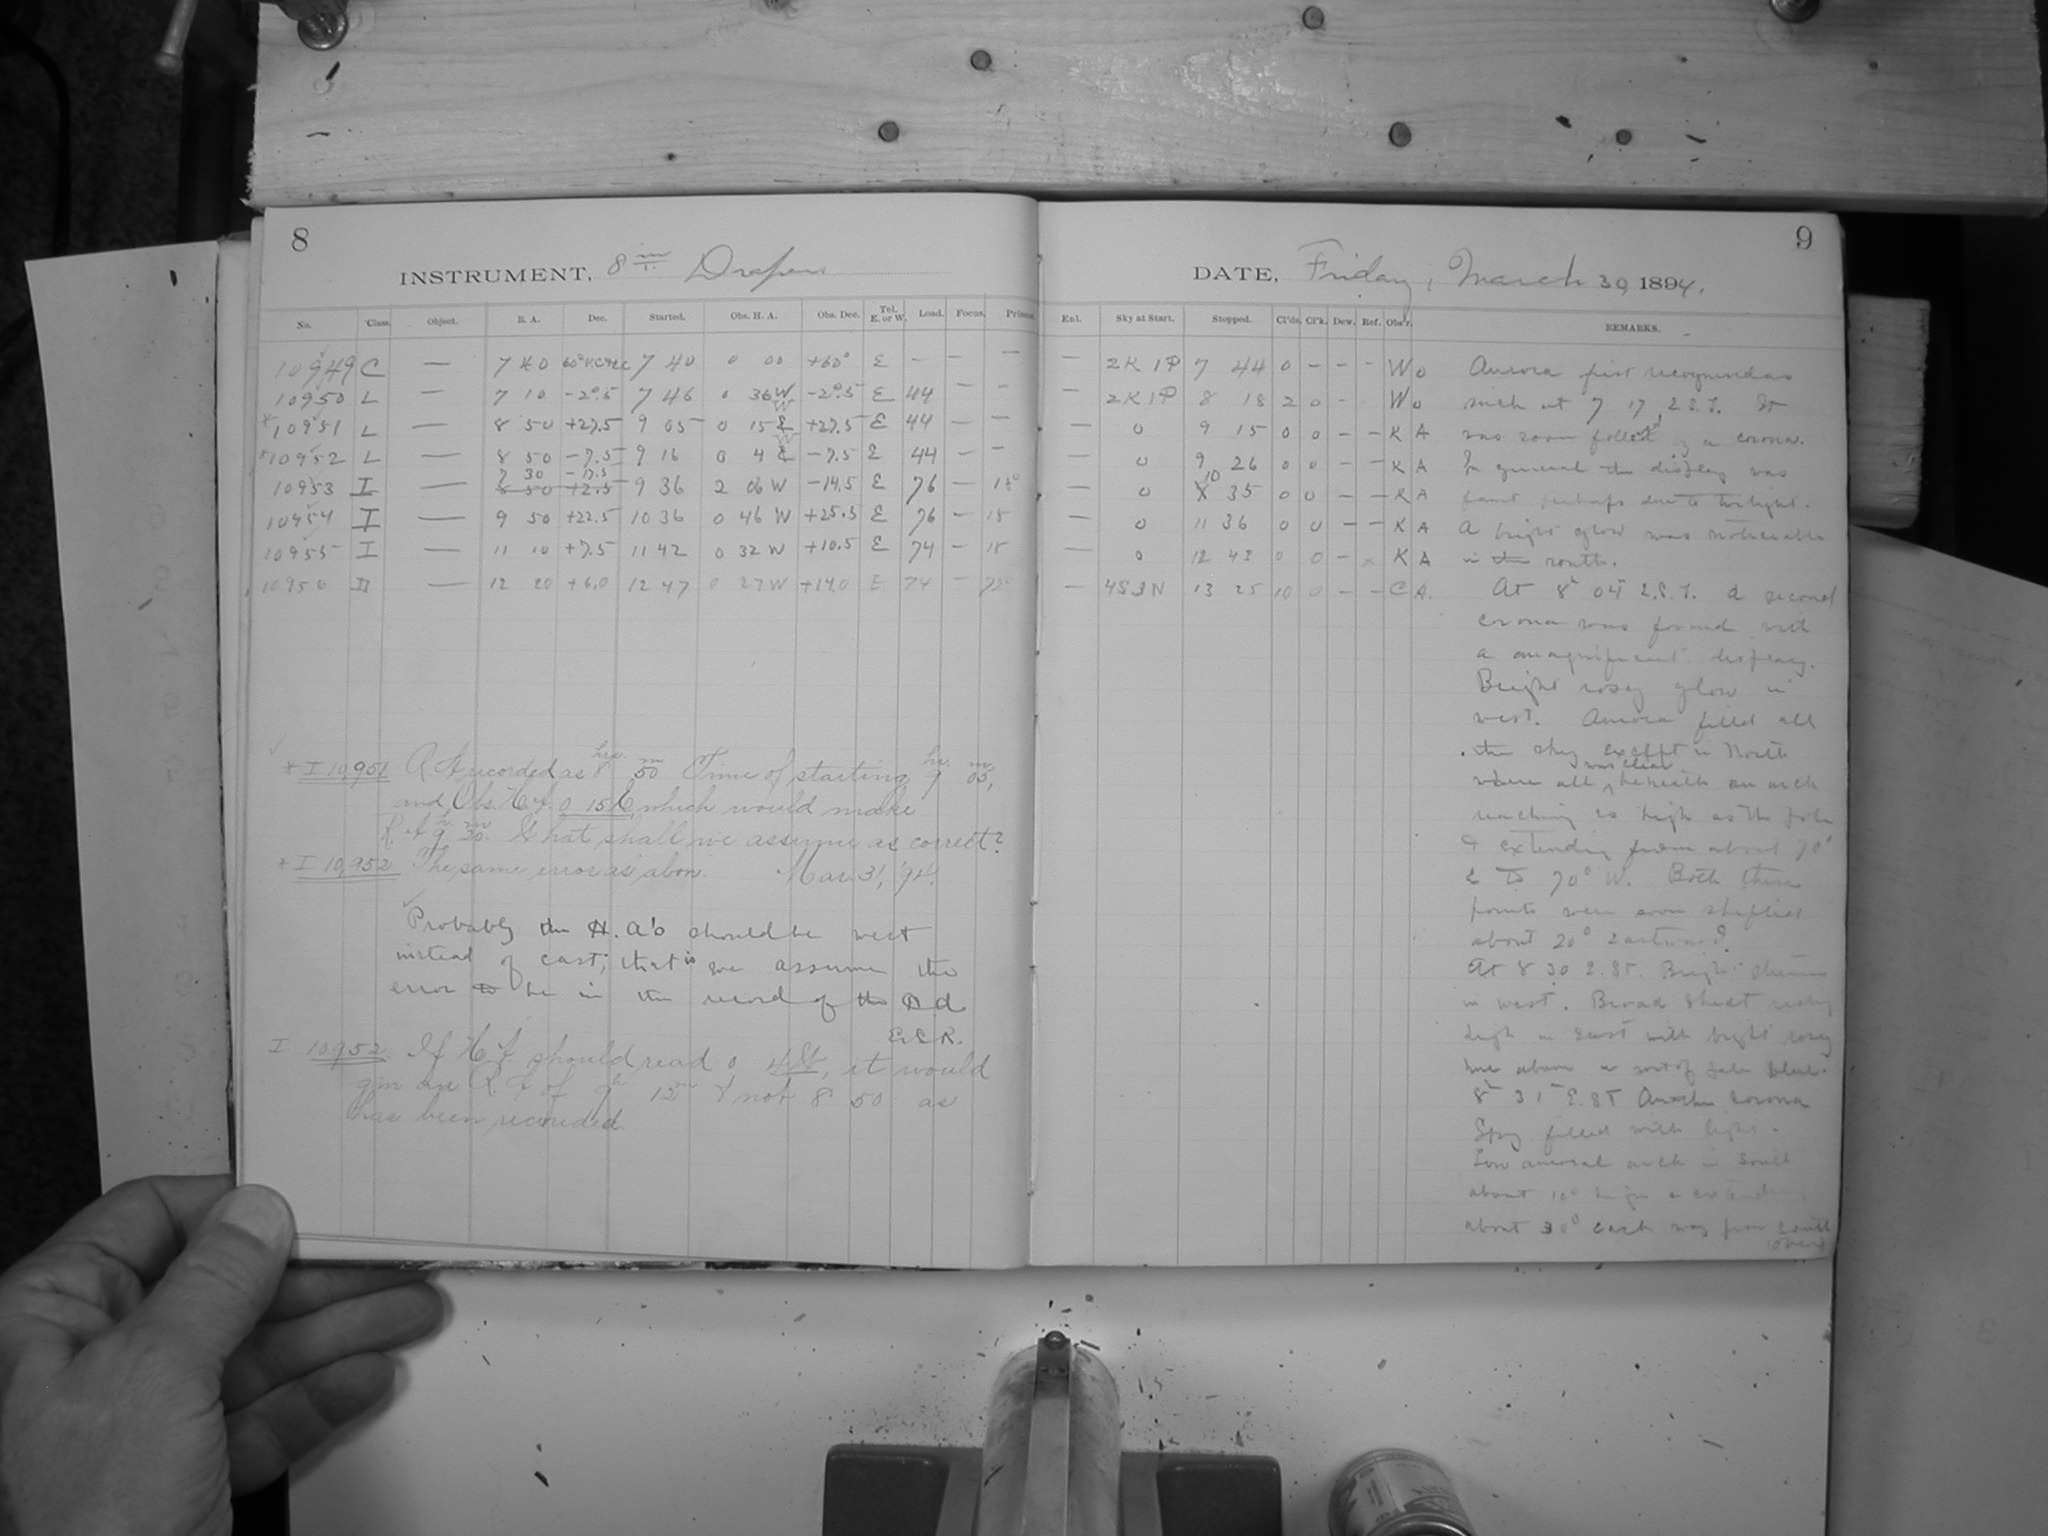 8
INSTRUMENT, 8 in. Draper
No. Class. Object. R. A. Dec. Started. Obs. H. A. Obs. Dec. Tel. E. or W. Load. Focus. Prisms.
10949 C — 7 40 7 40 0 00 +60° E — — —
10950 L — 7 10 -2°.5 7 46 0 36 W -2°.5 E 44 — —
*10951 L — 8 50 +27.5 9 05 0 15 E W +27.5 E 44 — —
*10952 L — 8 50 -7.5 9 16 0 4 E W -7.5 E 44 — —
7 30 -17.5
10953 I — 8 50 +2.5 9 36 2 06 W -14.5 E 76 — 15°
10954 I — 9 50 +22.5 10 36 0 46 W +25.5 E 76 — 15
10955 I — 11 10 +7.5 11 42 0 32 W +10.5 E 74 — 15
10956 — 12 20 +6.0 12 47 0 27 W +14.0 E 74 —
* I 10,951 R A recorded as 8 hrs. 50 m Time of starting 9 hr. 05 m,
and Obs. H.A. 0 15 E, which would make
R.A. 9 h. 20 m. What shall we assume as correct?
* I 10,952 The same error as above. Mar. 31, '94.
Probably the H.A's should be west
instead of east; that is we assume the
error to be in the record of the
E.E.R.
I 10952 If H.A. should read 0 4 W, it would
give an R.A. of 9h 12m & not 8 50 as
has been recorded.
9
DATE, Friday, March 30, 1894.
Enl. Sky at Start. Stopped. Cl'ds. Cl'k. Dew. Ref. Obs'r. REMARKS.
— 2K 1P 7 44 0 — — — W o
— 2K 1P 8 18 2 0 — W o
— 0 9 15 0 0 — — K A
— 0 9 26 0 0 — — K A
— 0 10 35 0 0 — — K A
— 0 11 36 0 0 — — K A
— 0 12 43 0 0 — × K A
— 13 25 10 0 — — C A.
Aurora first recognized as
such at 7 17, E.S.T. It
was soon followed by a corona.
In general the display was
faint perhaps due to twilight.
A bright glow was noticeable
in the south.
At 8h 04 E.S.T. a second
corona was formed with
a magnificent display.
Bright rosy glow in
west. Aurora filled all
the sky except in North
was clear
where all beneath an arch
reaching as high as the Pole
& extending from about 70°
E to 70° W. Both these
points were soon shifted
about 20° eastward.
At 8 30 E.St. Bright streamer
in west. Broad sheet
high in East with bright rosy
hue above a sort of pale blue.
8h 31m E.ST Another corona
Sky filled with light.
Low auroral arch in South
about 10° high & extending
about 30° each way from south
(over)